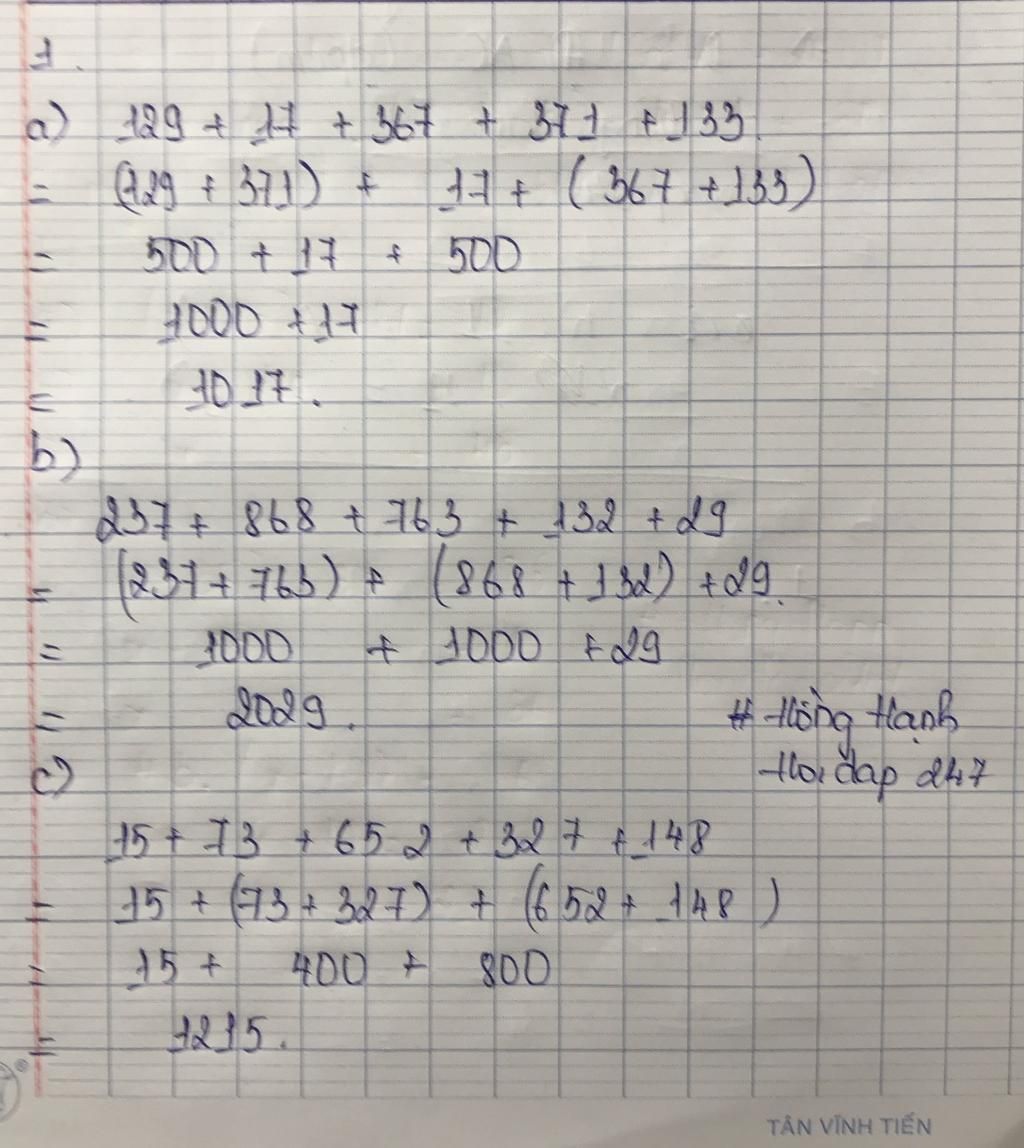 1.
a) 129 + 17 + 367 + 371 + 133
= (129 + 371) + 17 + (367 + 133)
= 500 + 17 + 500
= 1000 + 17
= 1017.
b)
237 + 868 + 763 + 132 + 29
= (237 + 763) + (868 + 132) + 29.
= 1000 + 1000 + 29
= 2029.
# Hồng Hạnh
c)
Hoi đap 247
15 + 73 + 652 + 327 + 148
= 15 + (73 + 327) + (652 + 148)
= 15 + 400 + 800
= 1215.
TÂN VĨNH TIẾN